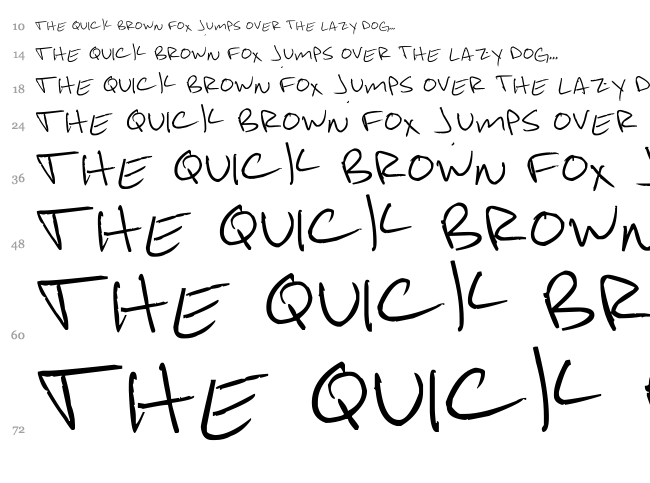 10 THE QUICK BROWN FOX JUMPS OVER THE LAZY DOG...
14 THE QUICK BROWN FOX JUMPS OVER THE LAZY DOG...
18 THE QUICK BROWN FOX JUMPS OVER THE LAZY D
24 THE QUICK BROWN FOX JUMPS OVER
36 THE QUICK BROWN FOX
48 THE QUICK BROWN
60 THE QUICK BR
72 THE QUICK